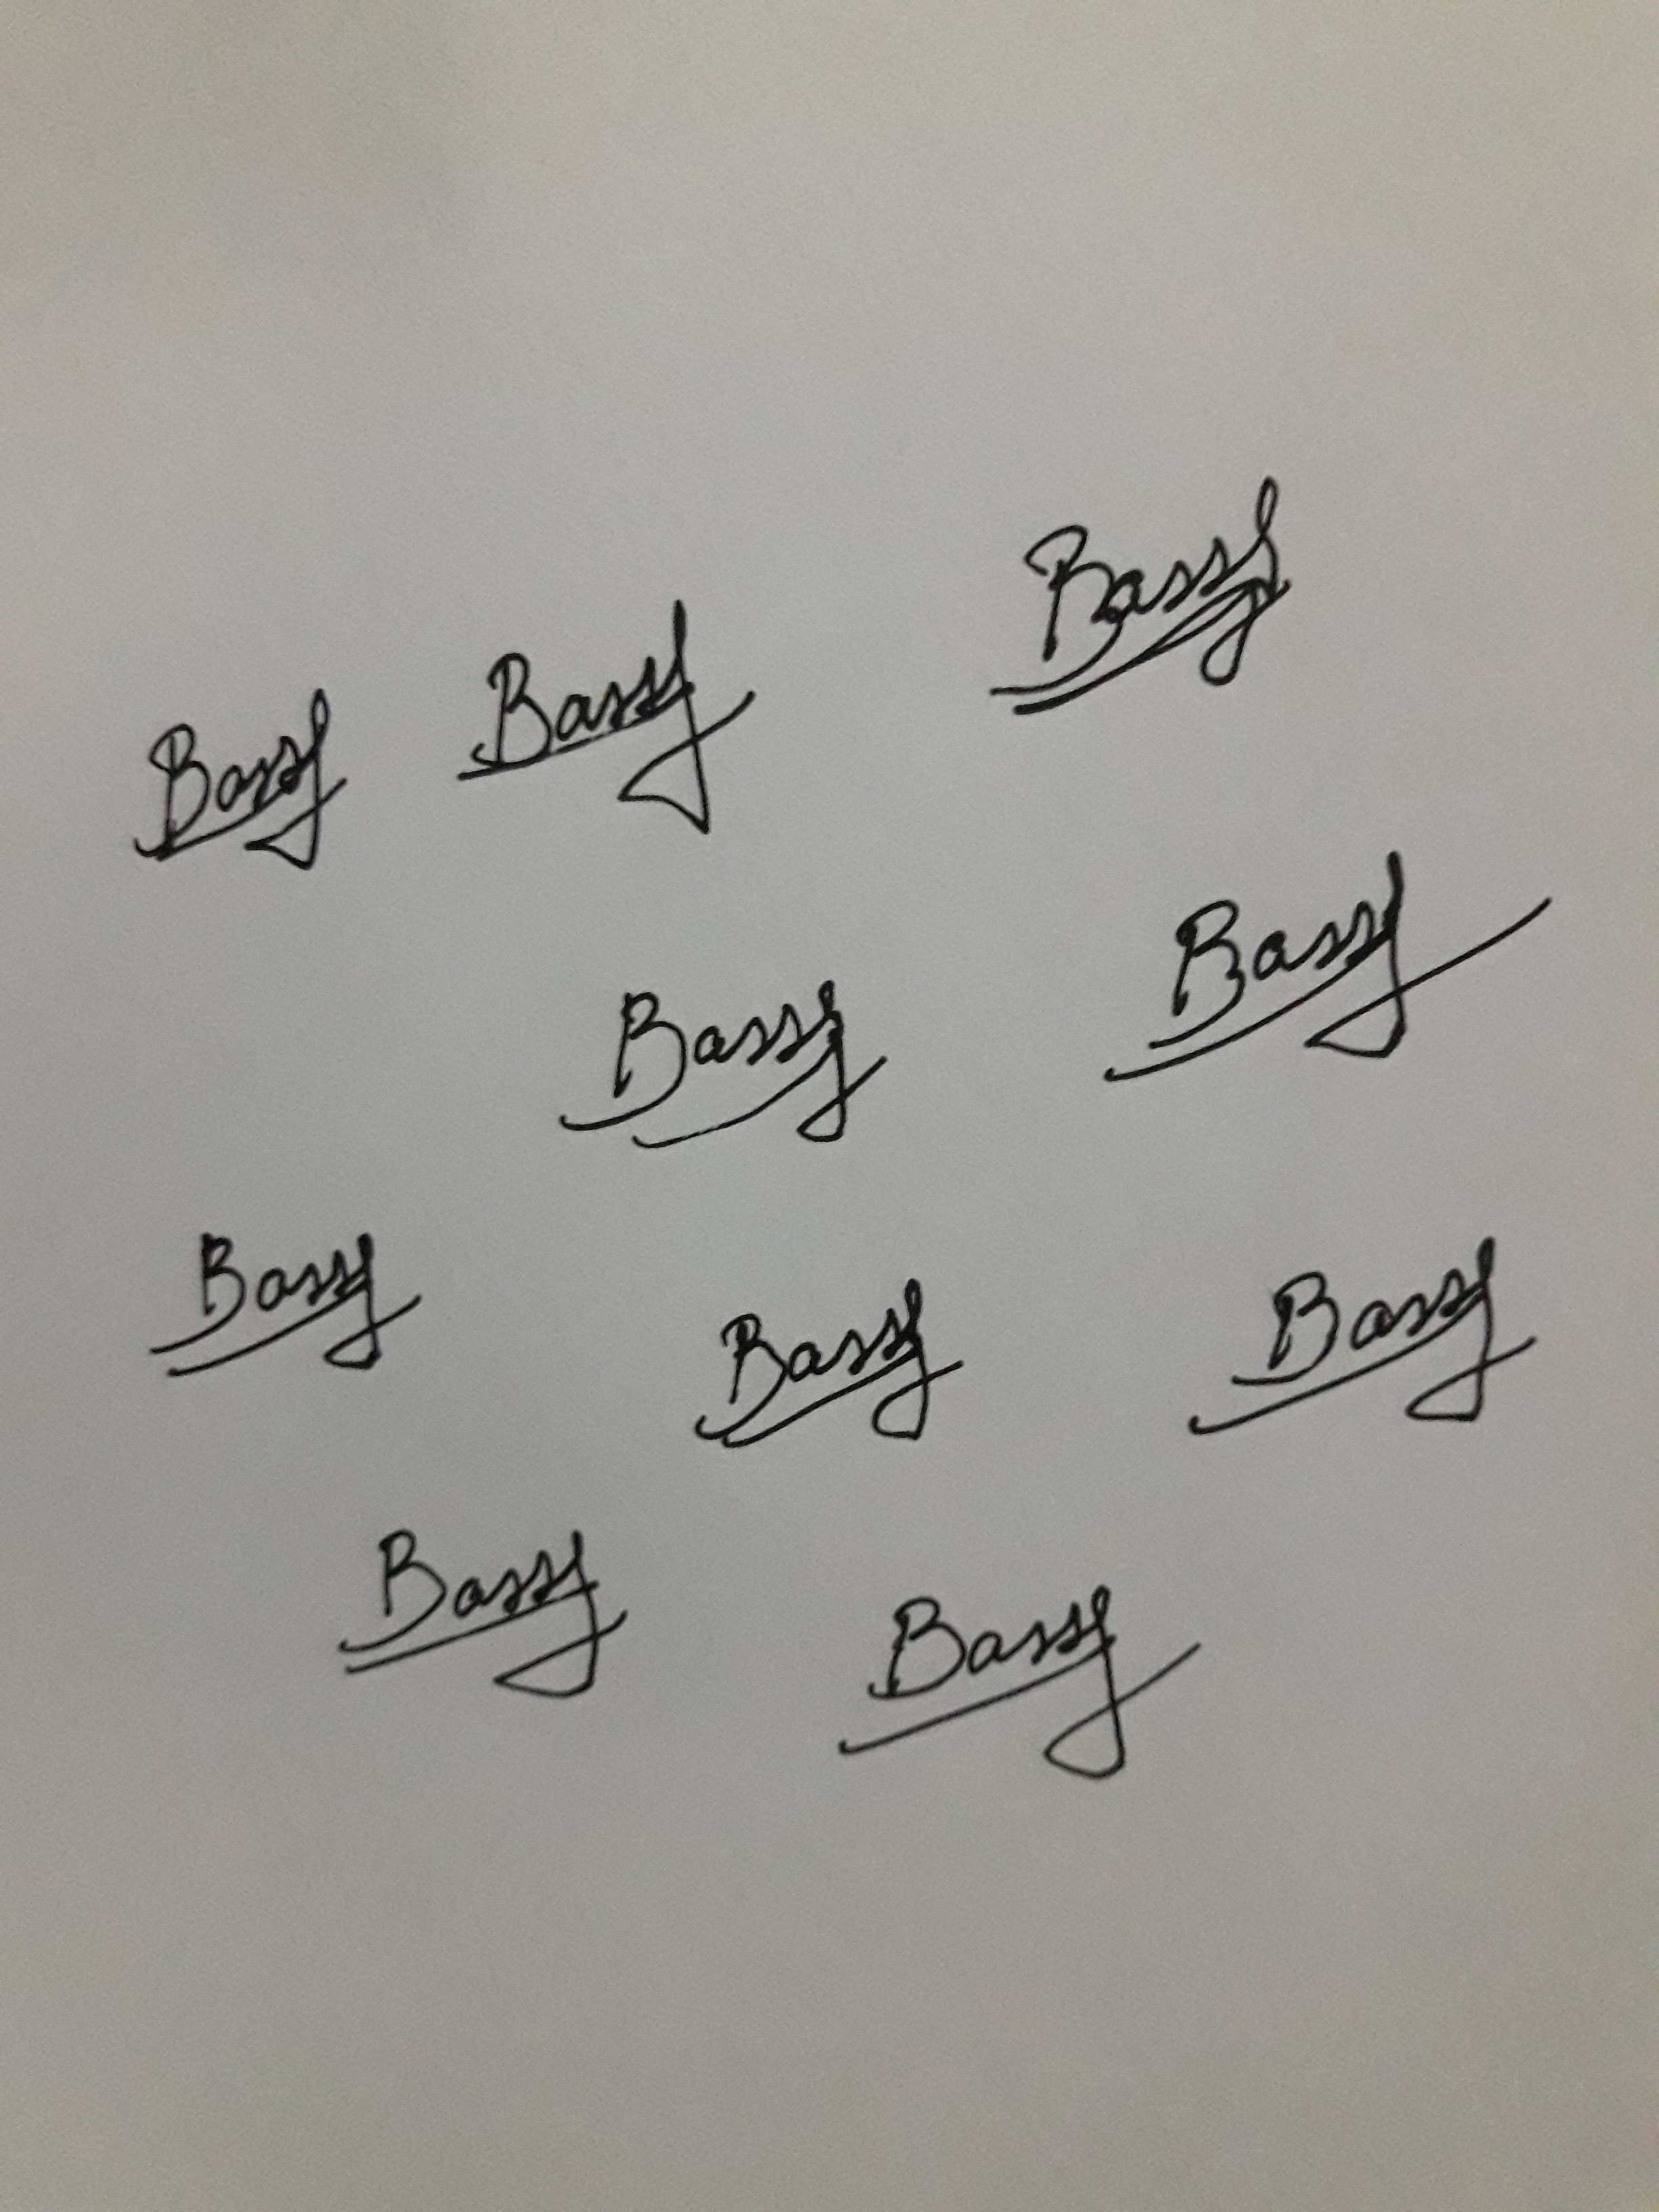 Bassy
Bassy
Bassy
Bassy
Bassy
Bassy
Bassy
Bassy
Bassy
Bassy